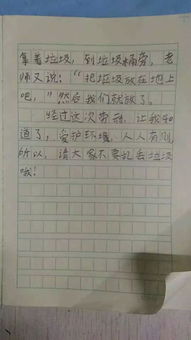 拿着垃圾，到垃圾桶旁。老
师又说：“把垃圾放在地上
吧，”然后我们就放了。
经过这次劳动，让我知
道了，爱护环境，人人有则，
所以，请大家不要乱丢垃圾
哦！